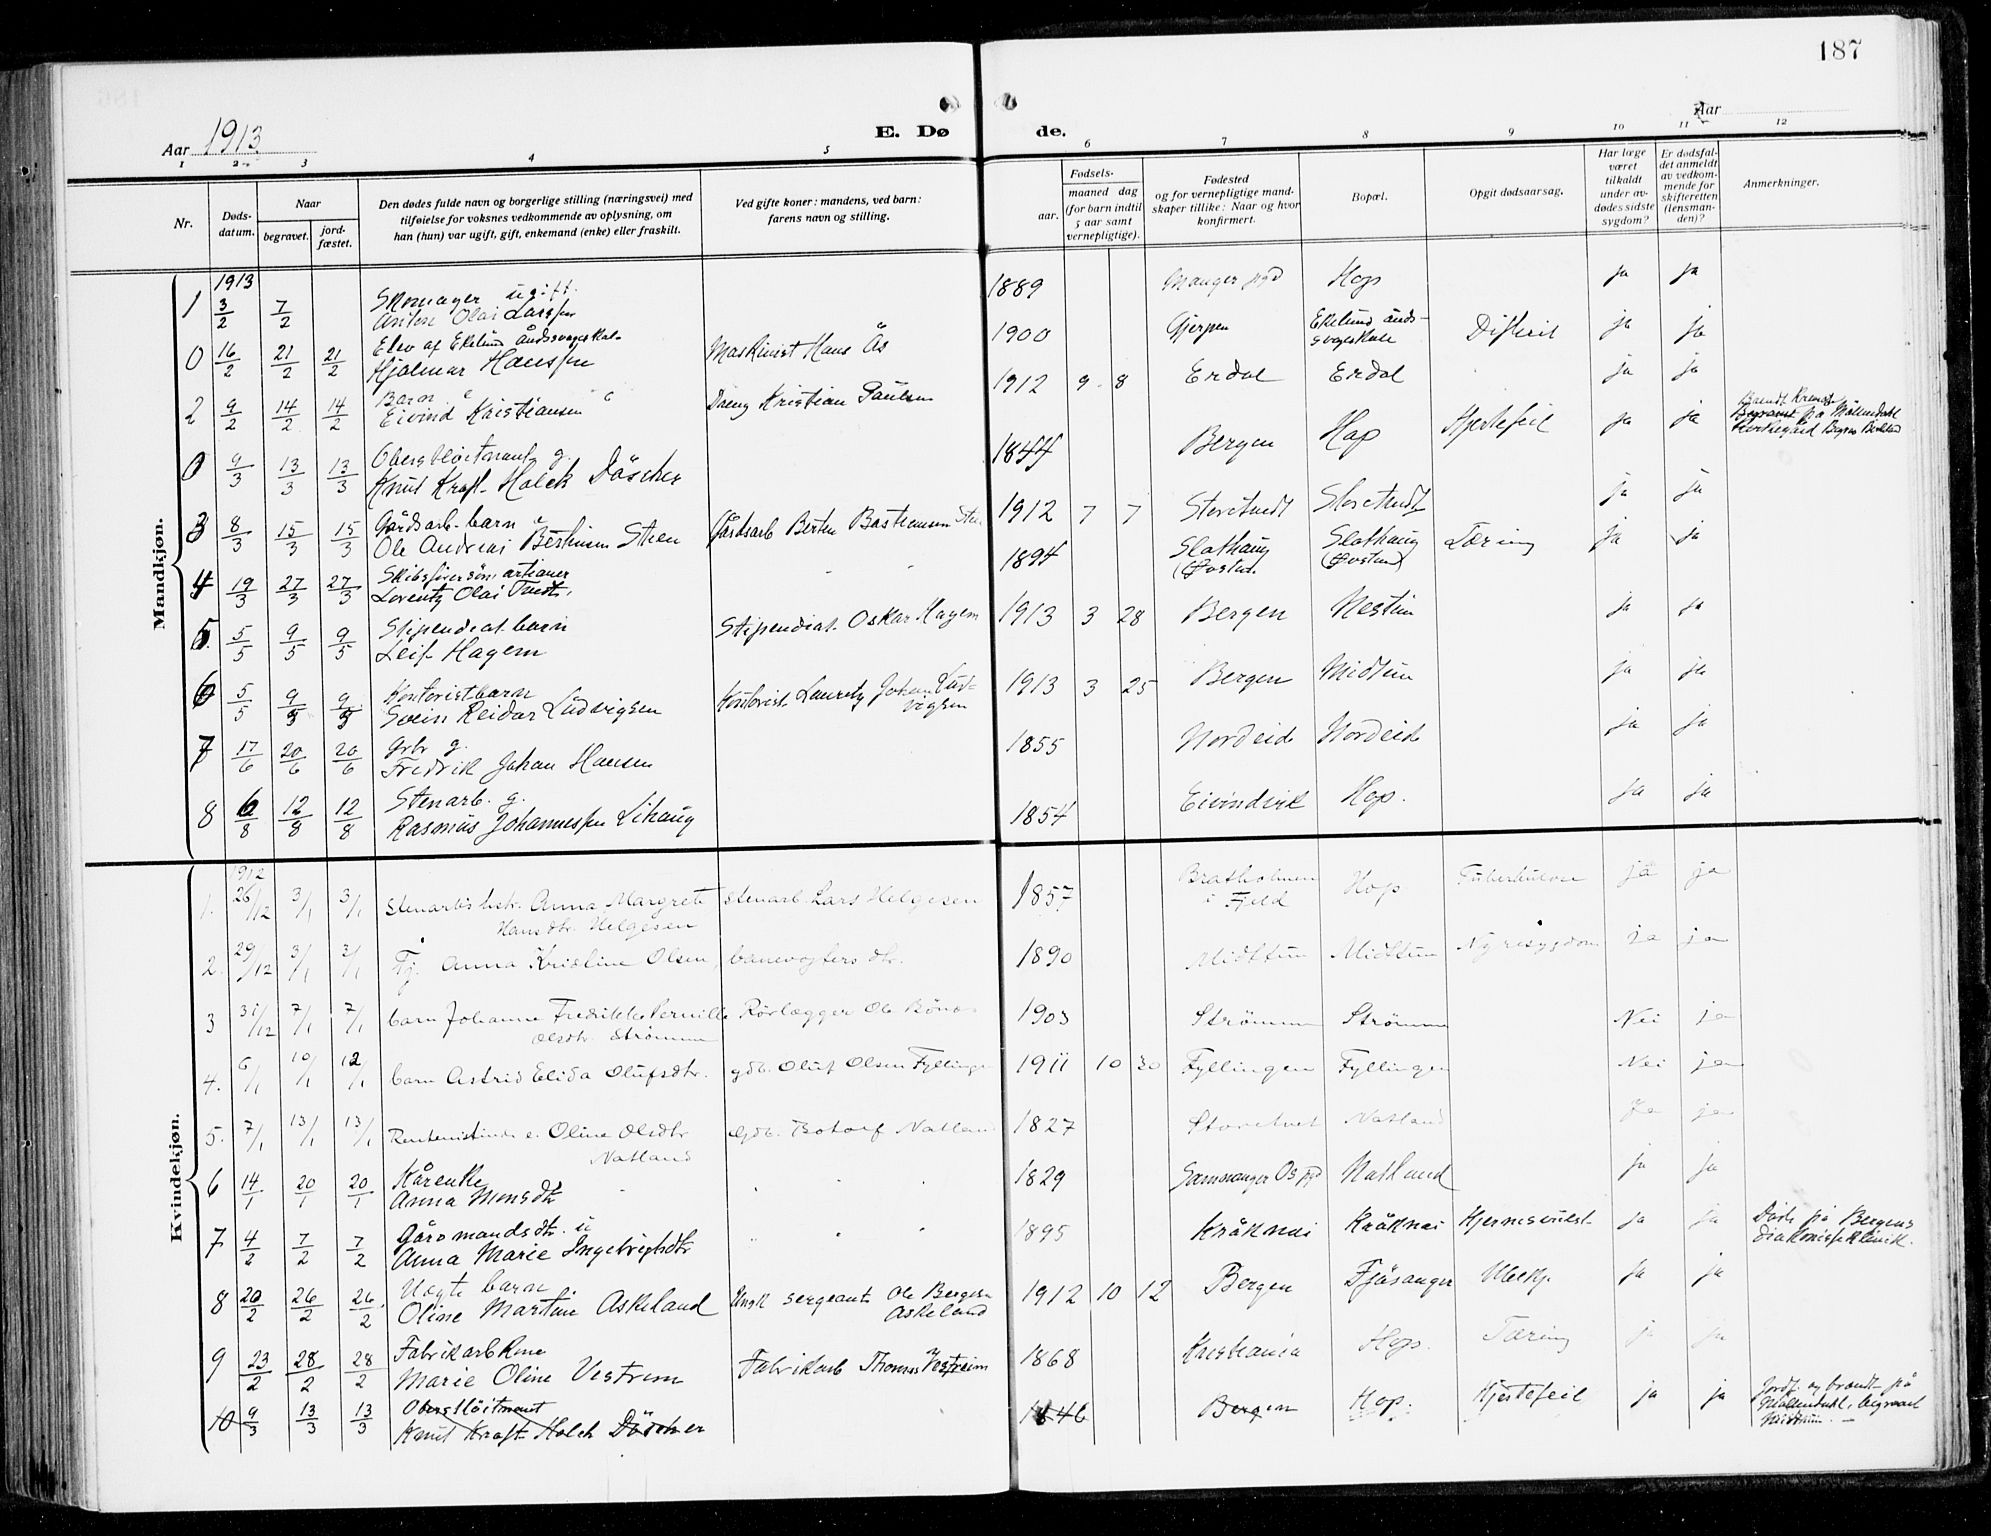 187
Aar 1913
E. Dø
de.
Aar
1 2 3 4 5 6 7 8 9 10 11 12
Nr.
Døds-
datum.
Naar
begravet.
jord-
fæstet.
Den dødes fulde navn og borgerlige stilling (næringsvei) med
tilføielse for voksnes vedkommende av oplysning, om
han (hun) var ugift, gift, enkemand (enke) eller fraskilt.
Ved gifte koner: mandens, ved barn:
farens navn og stilling.
Fødsels-
aar.
maaned dag
(for barn indtil
5 aar samt
vernepligtige).
Fødested
og for vernepligtige mand-
skaper tillike: Naar og hvor
konfirmert.
Bopæl.
Opgit dødsaarsag.
Har læge
været
tilkaldt
under av-
dødes sidste
sygdom?
Er dødsfal-
det anmeldt
av vedkom-
mende for
skifteretten
(lensman-
den)?
Anmerkninger.
Mandkjøn.
1913
1 3/2 7/2 Skomager ugift. Anton Olai Larssen 1889 Manger pgd Hop ja ja
0 16/2 21/2 21/2 Elev af Ekelund åndssvageskole Hjalmar Hanssen Maskinist Hans Ås 1900 Gjerpen Ekelund ånds-
svageskole Difterit ja ja
2 9/2 14/2 14/2 Barn Eivind Kristiansen Dreng Kristian Paulsen 1912 9 8 Erdal Erdal ja ja
0 9/3 13/3 13/3 Oberstløitnant g. Knut Kraft Holck Döscher 1844 Bergen Hop Hjertefeil ja ja på Møllendahl
3 8/3 15/3 15/3 Gårdsarb. barn Ole Andreas Bertinsen Steen Gårdsarb Bertin Bastiansen Steen 1912 7 7 Storetvedt Storetvedt ja ja
4 19/3 27/3 27/3 Lorentz Olai 1894 Slathaug Slathaug Tæring ja ja
5 5/5 9/5 9/5 Stipendiat barn Leif Hagem Stipendiat Oskar Hagem 1913 3 28 Bergen Nestun ja ja
6 5/5 9/5 9/5 Kontoristbarn Svein Reidar Ludvigsen Kontorist Lauritz Johan Lud-
vigsen 1913 3 25 Bergen Midtun ja ja
7 17/6 20/6 20/6 Grbr g. Fredrik Johan Hansen 1855 Nordeid Nordeid ja ja
8 6/8 12/8 12/8 Stenarb. g. Rasmus Johannessen Lihaug 1854 Eivindvik Hop. ja ja
Kvindekjøn.
1912
1. 26/12 3/1 3/1 Stenarb.s hstr. Anna Margrete
Hansdtr. Helgesen Stenarb. Lars Helgesen 1857 Bratholmen
i Fjeld Hop Tuberkulose ja ja
2. 29/12 3/1 3/1 Tj. Anna Kristine Olsen, banevogters dtr. 1890 Midttun Midttun Nyresygdom ja ja
3 31/12 7/1 7/1 barn Johanne Fredrikke Pernille
Olsdtr. Strømme Rørlægger Ole Bønes 1903 Strømme Strømme Nei ja
4. 6/1 10/1 12/1 barn Astrid Elida Olufsdtr. gdb. Oluf Olsen Fyllingen 1911 10 30 Fyllingen Fyllingen Nei ja
5. 7/1 13/1 13/1 Rentenistinde e. Oline Olsdtr
Natland Gdb. Botolf Natland 1827 Storetvet Natland Ja ja
6 14/1 20/1 20/1 Kårenke Anna Monsdtr 1829 Samnanger Os pgd Natland ja ja
7 4/2 7/2 7/2 Gårdmandsdtr. u Anna Marie Ingebrigtsdtr 1895 Kråknes Kråknes Hjernesvulst ja ja Døde på Bergens
diakonisseklinik.
8 20/2 26/2 26/2 Uægte barn Oline Martine Askeland Ungk sergeant Ole Bergesen
Askeland 1912 10 12 Bergen Fjøsanger ja ja
9 23/2 28/2 28/2 Fabrikarb kone Marie Oline Vestrem Fabrikarb Thomas Vestreim 1868 Kristiania Hop. Tæring ja ja
10 9/3 13/3 13/3 Oberstløitnant Knut Kraft Holck Döscher 1846 Bergen Hop. Hjertefeil ja ja Jordf. og brændt på
Møllendahl, begravet